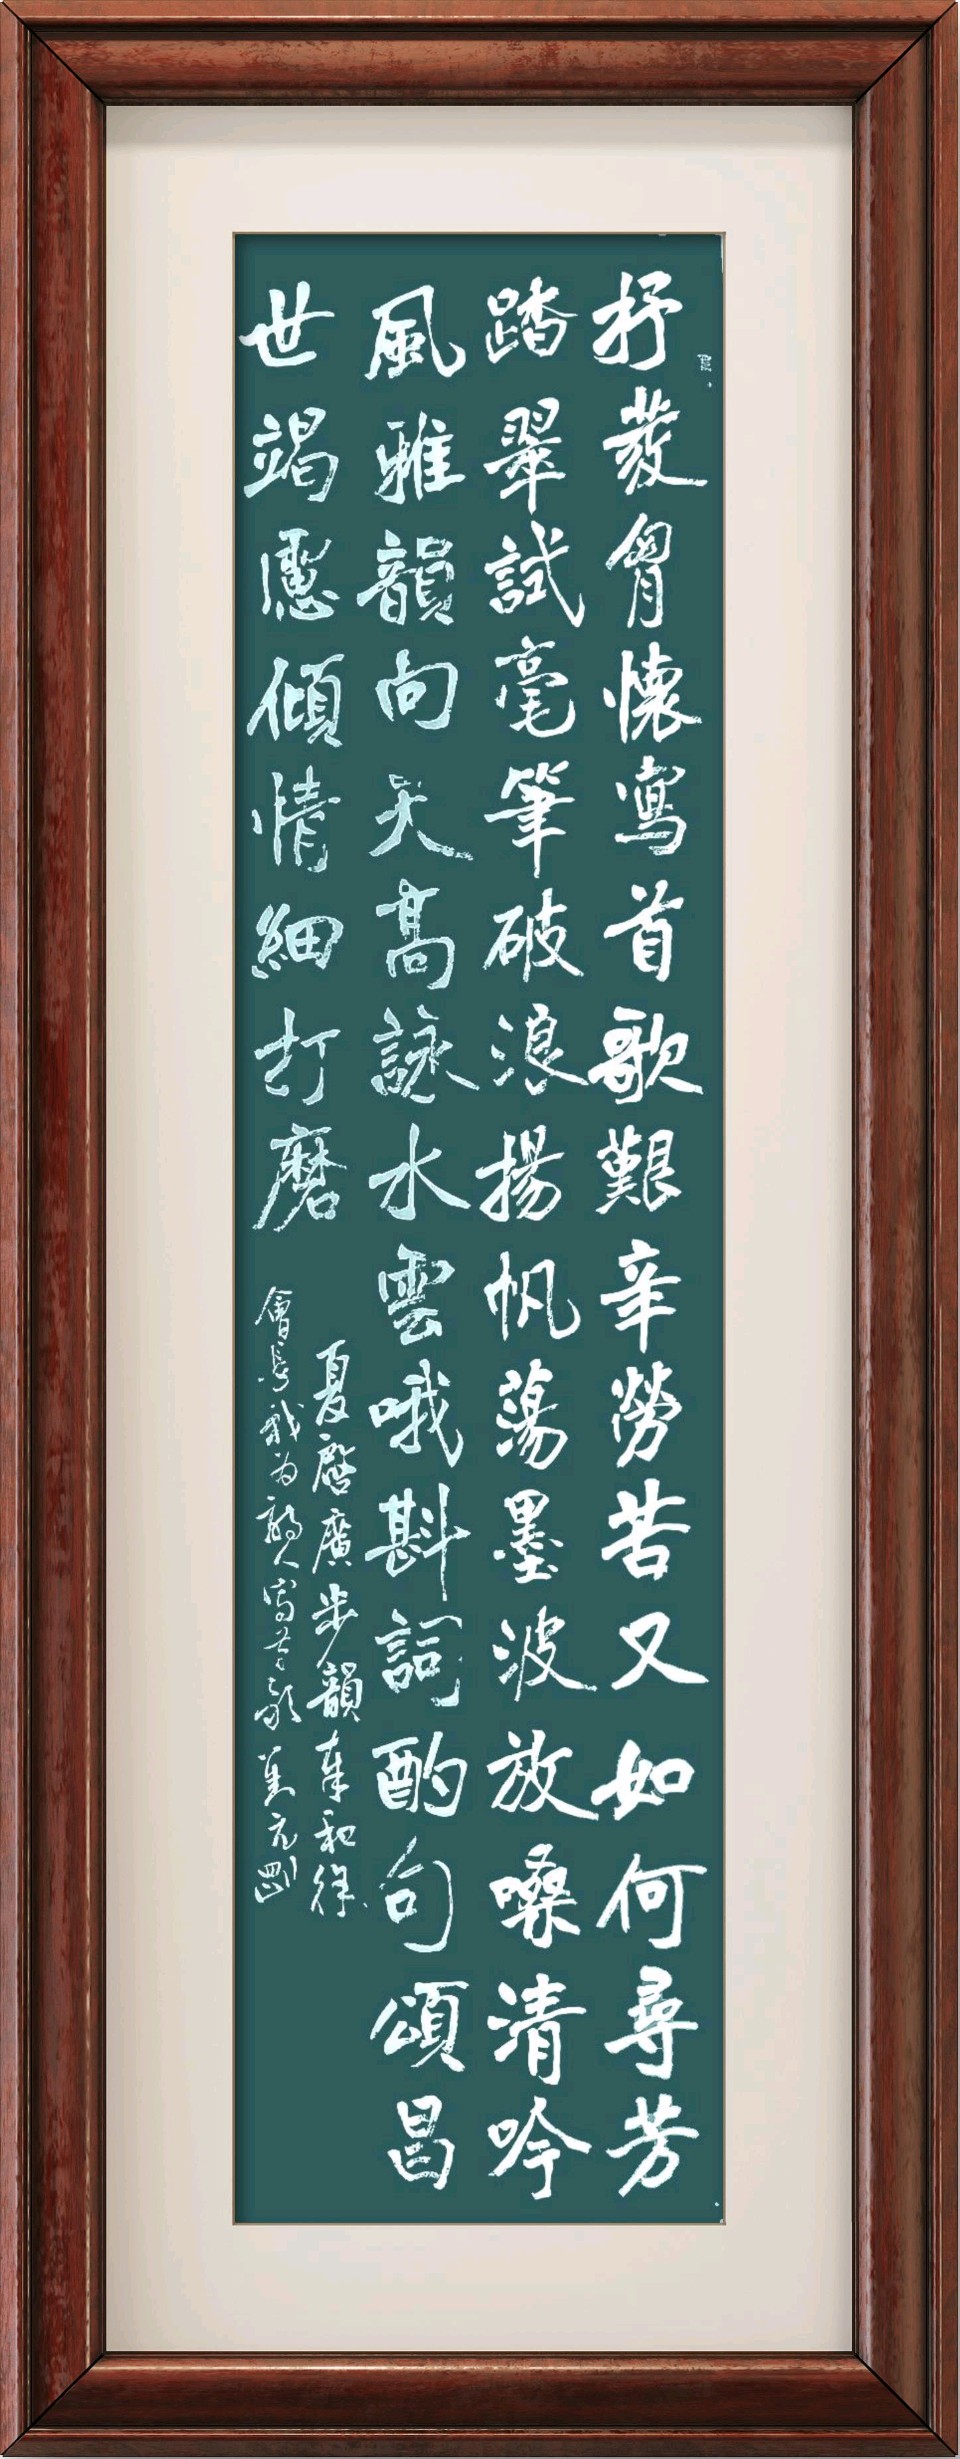 抒發胷懷寫首歌艱辛勞苦又如何尋芳
踏翠試毫筆破浪揚帆蕩墨波放嗓清吟
風雅韻向天高詠水雲哦斟詞酌句頌昌
世竭慮傾情細打磨
夏啓廣步韻奉和徐
會長我为詩人寫首歌